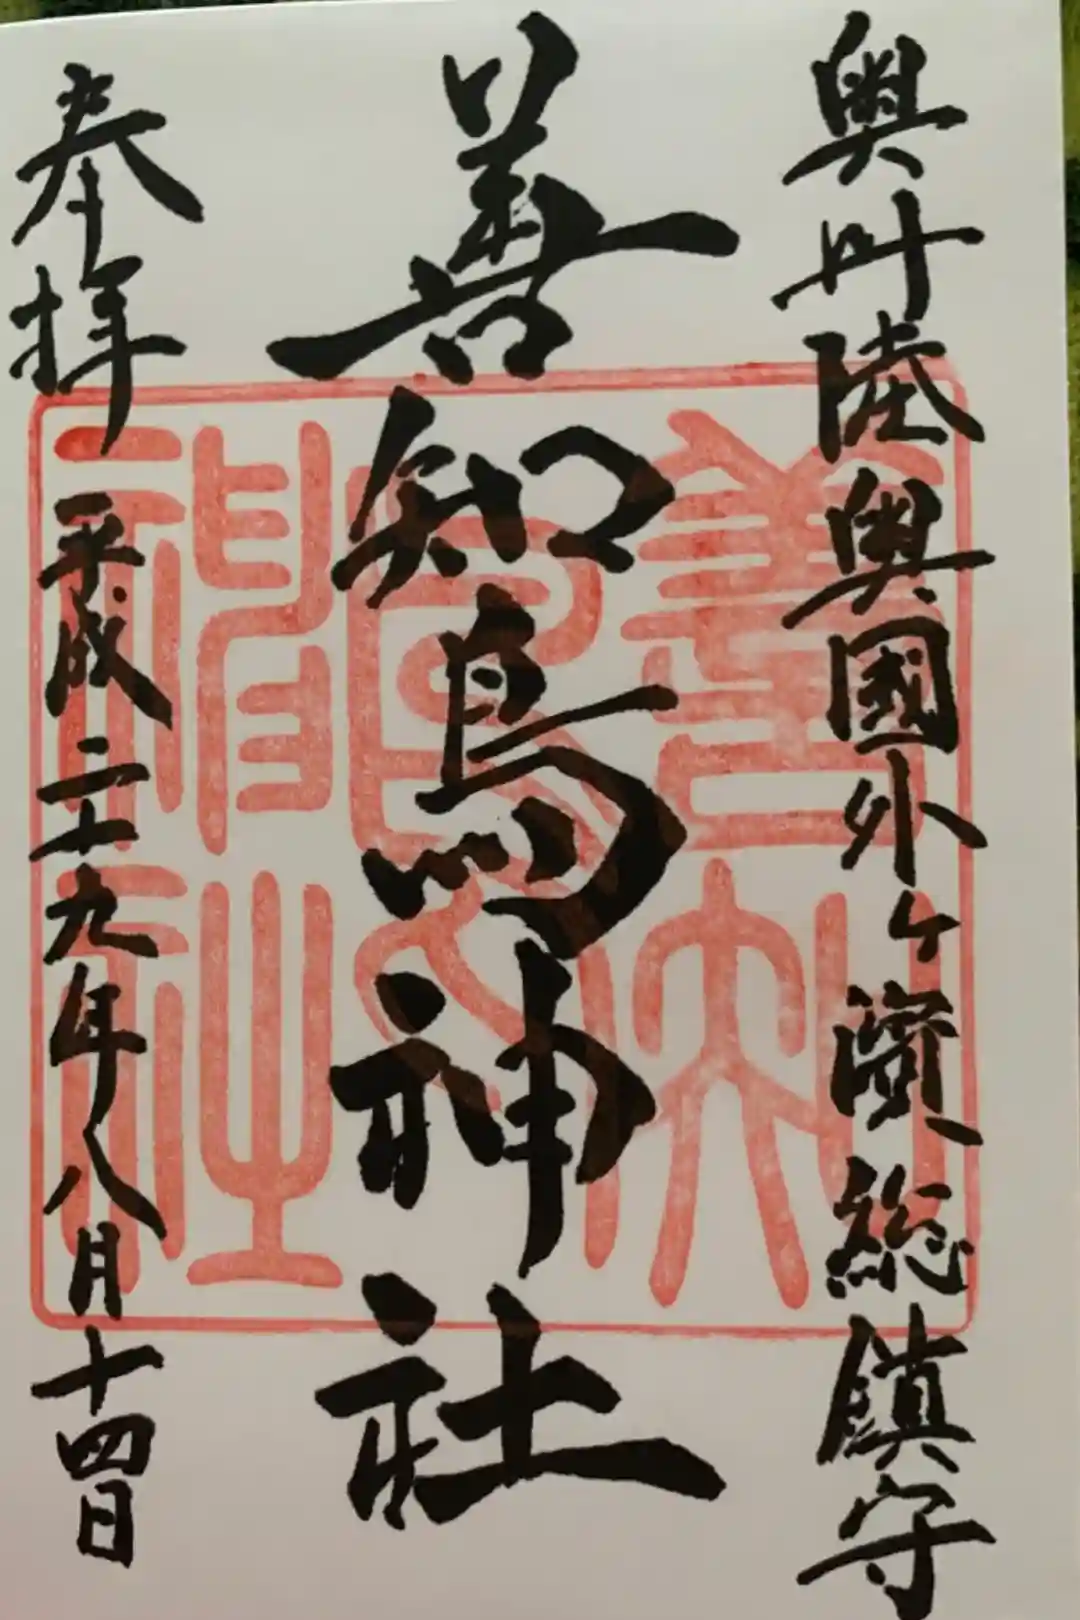 奥州陸奥國外ヶ濱総鎮守
善知鳥神社
奉拝 平成二十九年八月十四日
善知
鳥
神社